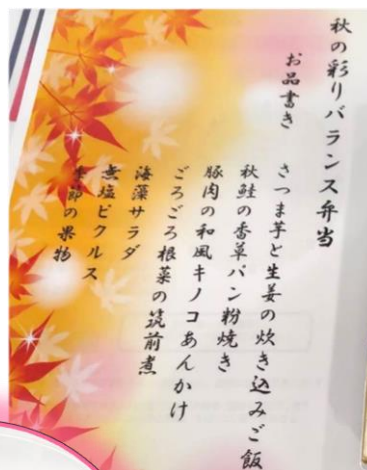 秋の彩りバランス弁当
お品書き
さつま芋と生姜の炊き込みご飯
秋鮭の香草パン粉焼き
豚肉の和風キノコあんかけ
ごろごろ根菜の筑前煮
海藻サラダ
無塩ピクルス
季節の果物